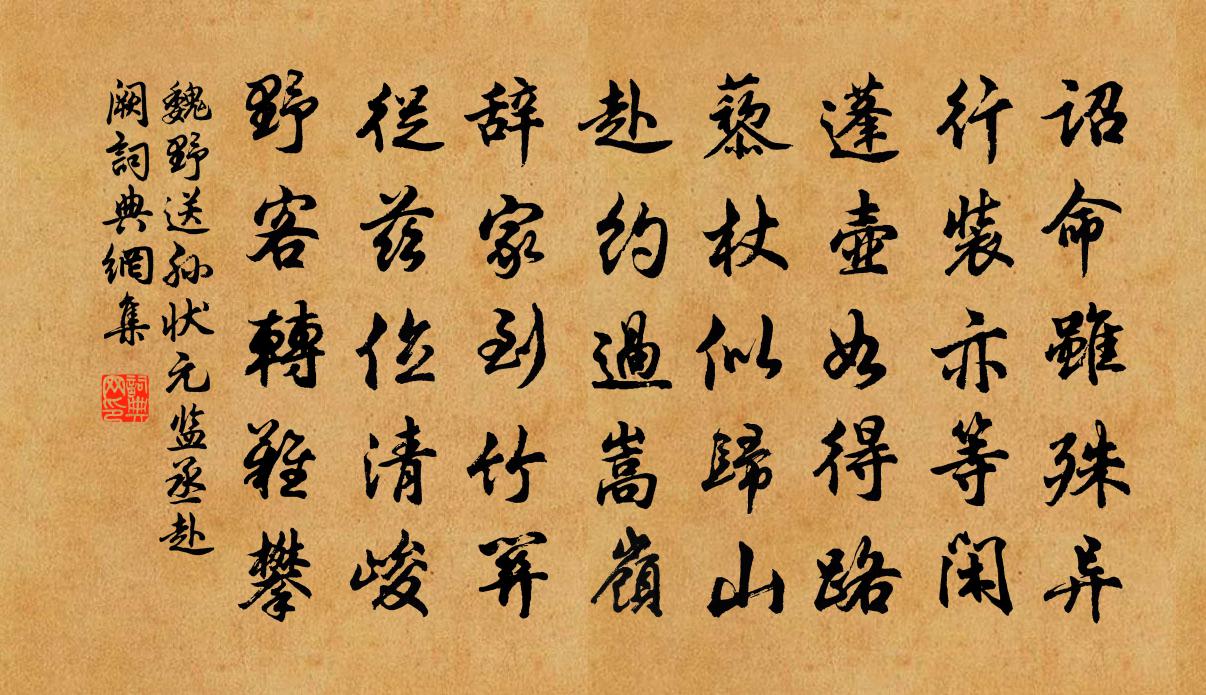 詔命雖殊异
行裝亦等閑
蓬壺如得路
藜杖似歸山
赴約過嵩嶺
辞家到竹關
從茲位清峻
野客轉難攀
魏野送孙状元监丞赴
阙詞典網集
詞典网印